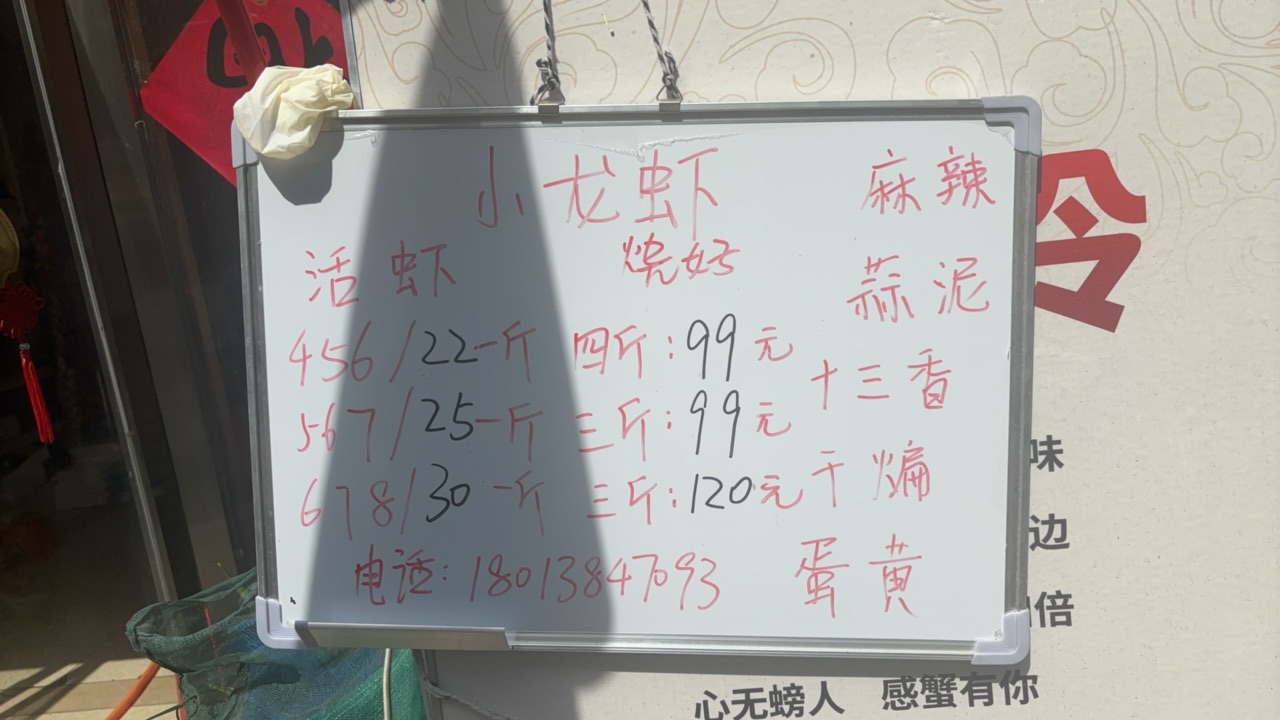 小龙虾 麻辣
活虾 烧好 蒜泥
456/22一斤 四斤:99元
十三香
567/25一斤 三斤:99元
678/30一斤 三斤:120元 干煸
电话:18013847093 蛋黄
令
味
边
倍
心无螃人 感蟹有你